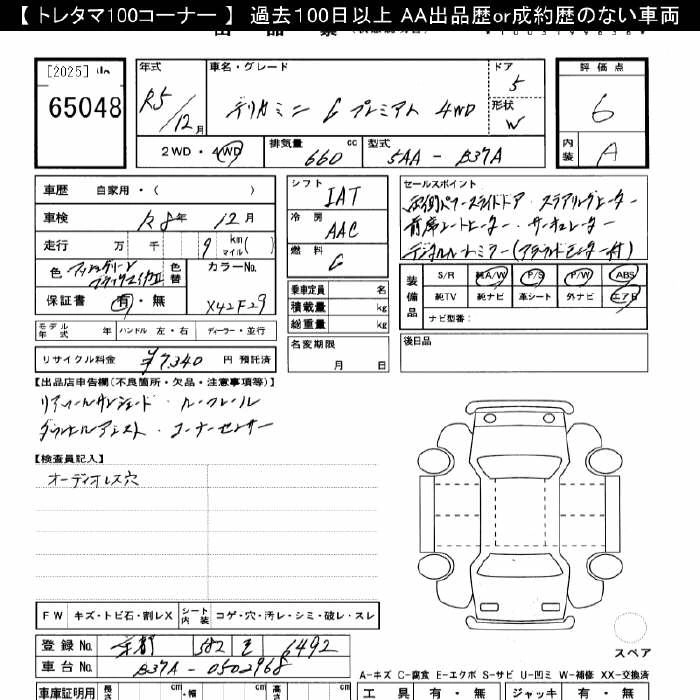 【 トレタマ100コーナー 】 過去100日以上 AA出品歴or成約歴のない車両
[2025]
65048
年式 車名・グレード ドア 評価点
R5/12月 デリカミニ G プレミアム 4WD 5
形状 W
6
2WD・4WD 排気量 660 cc 型式 5AA - B37A
内装 A
車歴 自家用・( )
車検 R8年 12月
走行 万 千 9 km マイル ( )
色 色替 カラーNo.
保証書 有・無 X42F29
モデル年式 年 ハンドル 左・右 ディーラー・並行
リサイクル料金 ¥7,340 円 預託済
シフト IAT
冷房 AAC
燃料 G
乗車定員 名
積載量 kg
総重量 kg
名変期限
月 日
セールスポイント
両側パワースライドドア・ステアリングヒーター
前席シートヒーター・サーキュレーター
デジタルルームミラー(アラウンドモニター付)
装備品 S/R 純A/W P/S P/W ABS
純TV 純ナビ 革シート 外ナビ エアB
ナビ型番:
後日品
【出品店申告欄(不良箇所・欠品・注意事項等)】
リアシールサンシェード・ルーフレール
ダウンヒルアシスト・コーナーセンサー
【検査員記入】
オーディオレス穴
FW キズ・トビ石・割レX シート内装 コゲ・穴・汚レ・シミ・破レ・スレ
登録No. 京都 582 6492
車台No. B37A - 0502968
スペア
A-キズ C-腐食 E-エクボ S-サビ U-凹ミ W-補修 XX-交換済
車庫証明用 長さ cm ・幅 cm 高さ cm 工具 有・無 ジャッキ 有・無